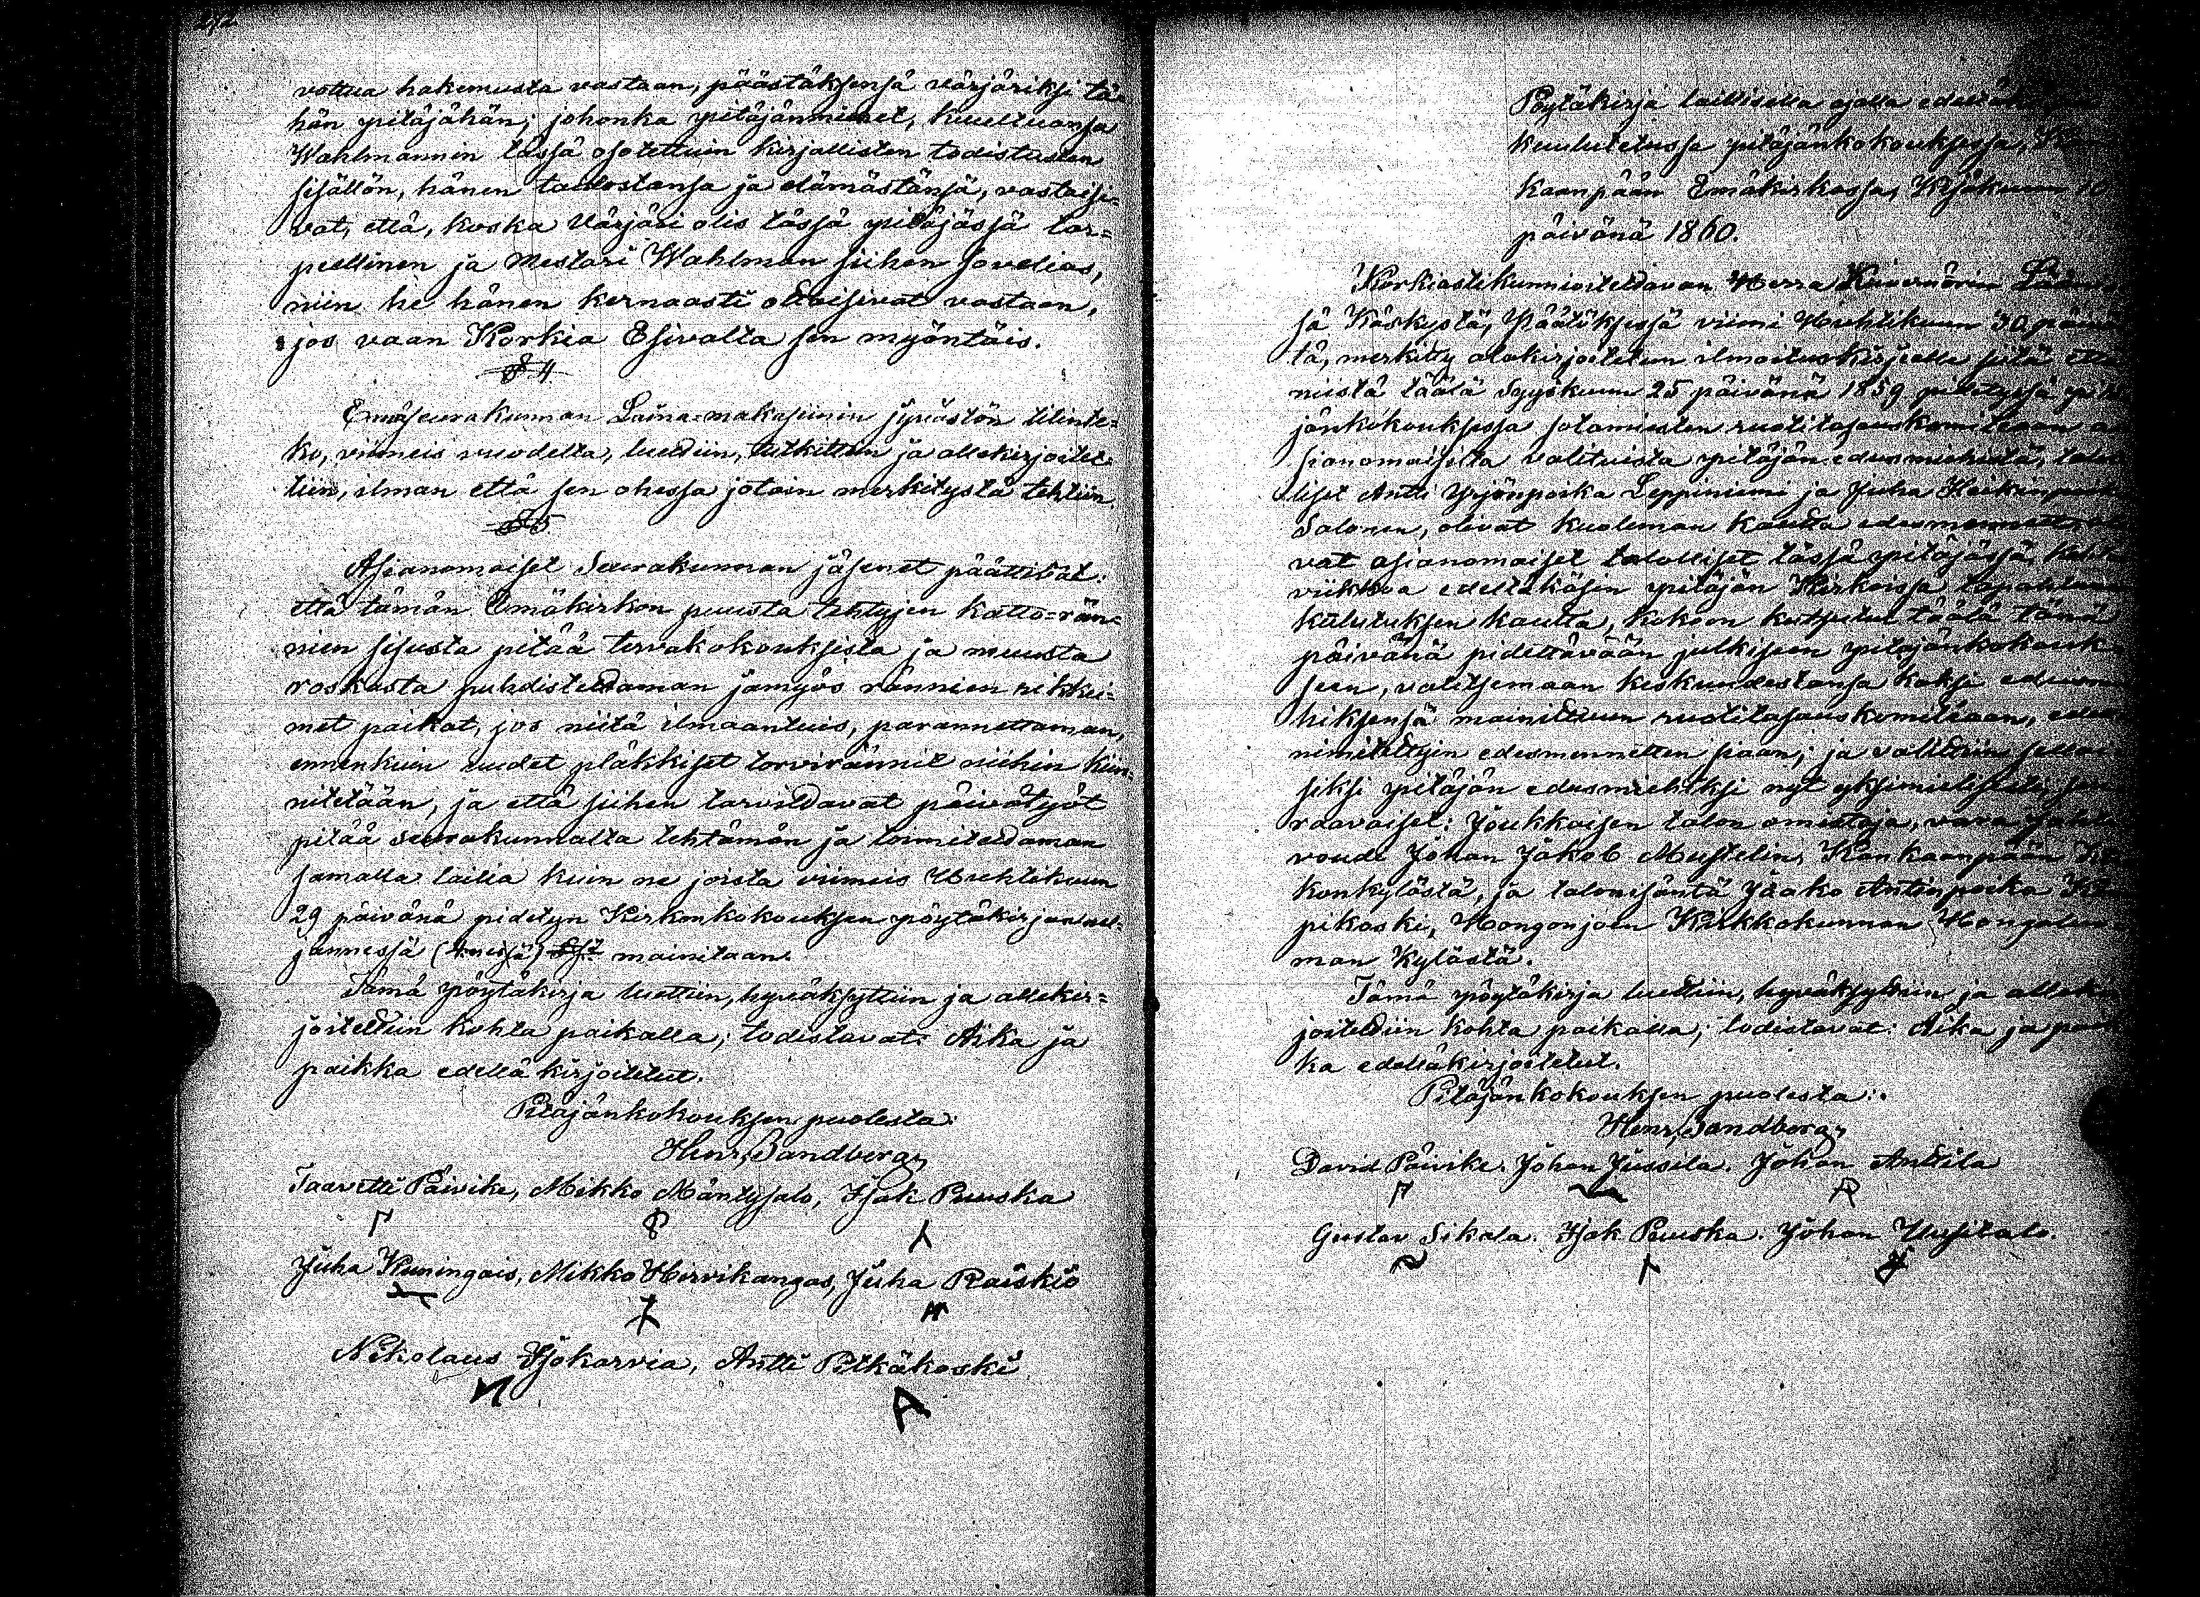 292
vottua hakemusta vastaan, päästäksensä värjäriksi tä-
hän pitäjähän; johonka pitäjänmiehet, kuultuansa
Wahlmannin tässä osotettuin kirjallisten todistusten
sisällön, hänen taidostansa ja elämästänsä, vastaisi=
vat, että, koska Värjäri olis tässä pitäjässä tar=
peellinen ja Mestari Wahlman siihen sovelias,
niin he hänen kernaasti ottaisivat vastaan,
jos vaan Korkia Esivalta sen myöntäis.
§ 4.
Emäseurakunnan Laina-makasiinin jyvästön tilinte=
ko, viimeis vuodelta, luettiin, tutkittiin ja allekirjoitet-
tiin, ilman että sen ohessa jotain merkitystä tehtiin.
§ 5.
Asianomaiset Seurakunnan jäsenet päättivät:
että tämän Emäkirkon puusta tehtyjen katto=rän=
nien sisusta pitää tervakokouksista ja muusta
roskasta puhdistettaman jamyös rännien rikkei=
met paikat, jos niitä ilmaantuis, parannettaman,
ennenkuin uudet pläkkiset torvirännit niihin kiin=
nitetään, ja että siihen tarvittavat päivätyöt
pitää Seurakunnalta tehtämän ja toimitettaman
samalla lailla kuin ne joista viimeis Huhtikuun
29 päivänä pidetyn Kirkonkokouksen pöytäkirjan nel=
jännessä (4:nessä) §:ssä mainitaan.
Tämä pöytäkirja luettiin, hyväksyttiin ja allekir=
joitettiin kohta paikalla; todistavat: Aika ja
paikka edellä kirjoitetut.
Pitäjänkokouksen puolesta:
Henr. Sandberg,
Taavetti Päivike, Mikko Mäntysalo, Isak Puuska
Juha Kuningas, Mikko Hirvikangas, Juha Raiskio
Nikolaus Isokarvia, Antti Pitkäkoski
A
Pöytäkirja laillisella ajalla edeltä
kuulutetussa pitäjänkokouksessa,
kaanpään Emäkirkossa, Kesäkuun
päivänä 1860.
Korkiastikunnioitettavan Herra Kuvernörin Lääni
sä Käskystä, Päätöksessä viimi Huhtikuun 30 päivä
tä, merkitty alakirjoitetun ilmoituskirjealle siitä että
niistä täälä Syyskuun 25 päivänä 1859 pidetyssä pitä
jänkokouksessa sotamiesten ruotitasauskomiteaan
sianomaisilta valituista pitäjän edusmiehistä, talol
liset Antti Yrjönpoika Leppiniemi ja Juha Heikinpoika
Salonen, olivat kuoleman kautta edesmenneet,
vat asianomaiset talolliset tässä pitäjässä
viikkoa edeltäkäsin pitäjän Kirkoissa tapahtuneen
kulutuksen kautta, kokoon kutsutut täälä tänä
päivänä pidettävään julkiseen pitäjänkokouk
seen, valitsemaan keskuudestansa kaksi edusm
hiksensä mainittuun ruotitasauskomiteaan, edel
nimitettyin edesmennetten siaan; ja valittiin sella
siksi pitäjän edusmiehiksi nyt yksimielisesti, seu
raavaiset: Joukkaisen talon omistaja,
voudi Johan Jakob Mustelin, Kankaanpään
konkylästä, ja talonisäntä Jaako Antinpoika
pikoski, Hongonjoen Kirkkokunnan
man Kylästä.
Tämä pöytäkirja luettiin, hyväksyttiin ja alleki
joitettiin kohta paikalla; todistavat: Aika ja paik
ka edelläkirjoitetut.
Pitäjänkokouksen puolesta:
Henr. Sandberg,
David Päivike. Johan Jussila. Johan Anttila
Gustav Sikala. Isak Puuska. Johan Uusitalo.